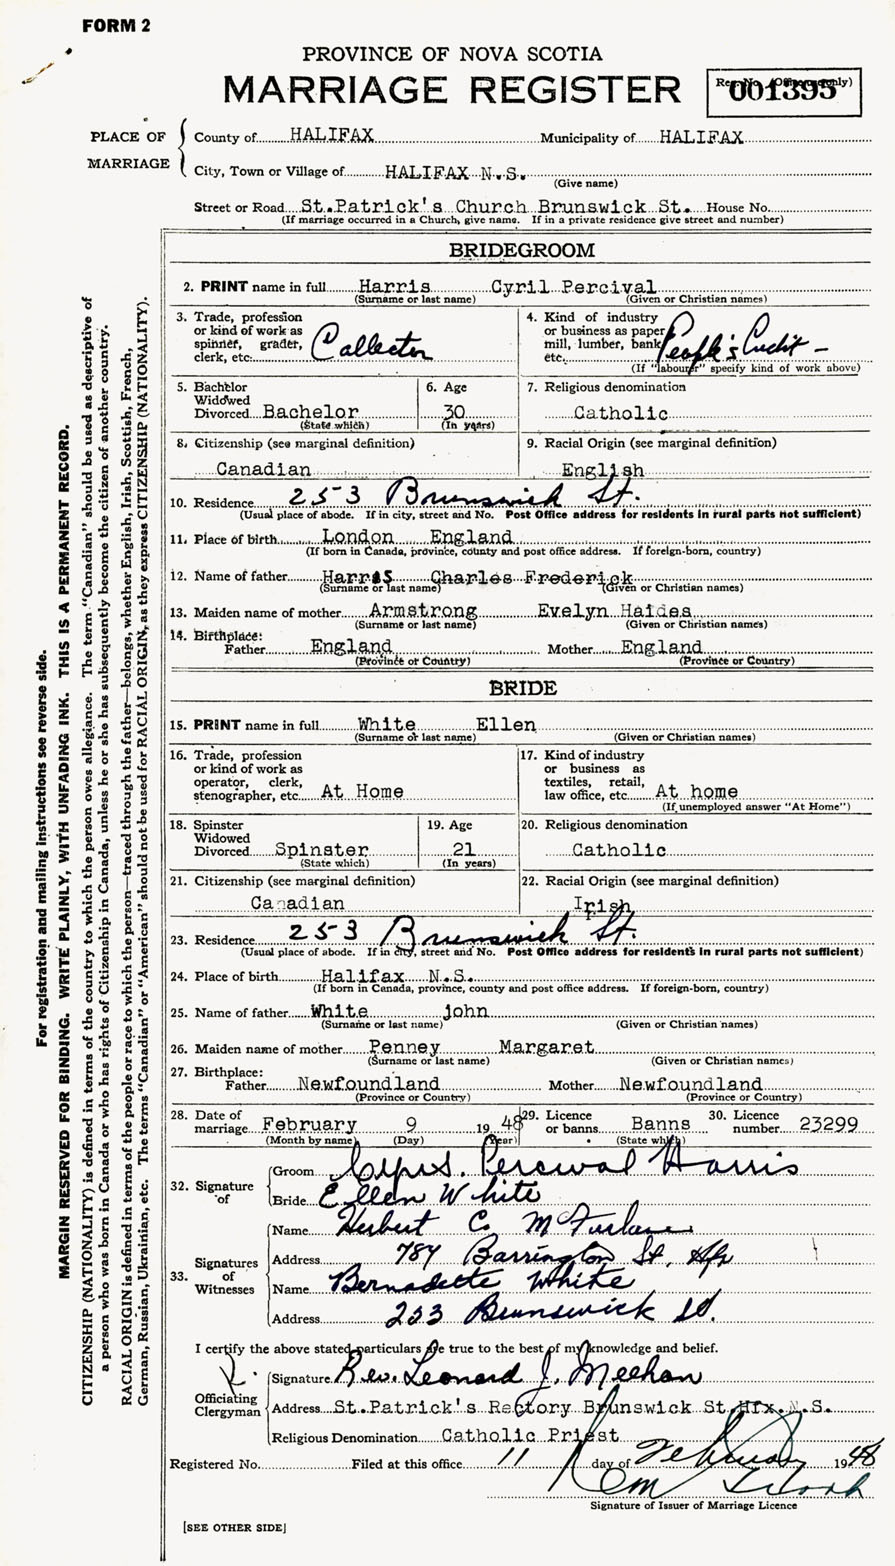 FORM 2
PROVINCE OF NOVA SCOTIA
MARRIAGE REGISTER
Reg. No. (Office use only)
001395
PLACE OF MARRIAGE
County of HALIFAX Municipality of HALIFAX
City, Town or Village of HALIFAX N.S.
(Give name)
Street or Road St.Patrick's Church Brunswick St. House No.
(If marriage occurred in a Church, give name. If in a private residence give street and number)
BRIDEGROOM
2. PRINT name in full Harris Cyril Percival
(Surname or last name) (Given or Christian names)
3. Trade, profession or kind of work as spinner, grader, clerk, etc. Collector
4. Kind of industry or business as paper mill, lumber, bank etc. People's Credit –
(If "labourer" specify kind of work above)
5. Bachelor Widowed Divorced Bachelor
(State which)
6. Age 30
(In years)
7. Religious denomination
Catholic
8. Citizenship (see marginal definition)
Canadian
9. Racial Origin (see marginal definition)
English
10. Residence 253 Brunswick St.
(Usual place of abode. If in city, street and No. Post Office address for residents in rural parts not sufficient)
11. Place of birth London England
(If born in Canada, province, county and post office address. If foreign-born, country)
12. Name of father Harris Charles Frederick
(Surname or last name) (Given or Christian names)
13. Maiden name of mother Armstrong Evelyn Haidea
(Surname or last name) (Given or Christian names)
14. Birthplace:
Father England Mother England
(Province or Country) (Province or Country)
BRIDE
15. PRINT name in full White Ellen
(Surname or last name) (Given or Christian names)
16. Trade, profession or kind of work as operator, clerk, stenographer, etc. At Home
17. Kind of industry or business as textiles, retail, law office, etc. At home
(If unemployed answer "At Home")
18. Spinster Widowed Divorced Spinster
(State which)
19. Age 21
(In years)
20. Religious denomination
Catholic
21. Citizenship (see marginal definition)
Canadian
22. Racial Origin (see marginal definition)
Irish
23. Residence 253 Brunswick St.
(Usual place of abode. If in city, street and No. Post Office address for residents in rural parts not sufficient)
24. Place of birth Halifax N.S.
(If born in Canada, province, county and post office address. If foreign-born, country)
25. Name of father White john
(Surname or last name) (Given or Christian names)
26. Maiden name of mother Penney Margaret
(Surname or last name) (Given or Christian names)
27. Birthplace:
Father Newfoundland Mother Newfoundland
(Province or Country) (Province or Country)
28. Date of marriage February 9 1948
(Month by name) (Day) (Year)
29. Licence or banns Banns
(State which)
30. Licence number 23299
32. Signature of
Groom Cyril Percival Harris
Bride Ellen White
33. Signatures of Witnesses
Name Herbert C. McFarlane
Address 784 Barrington St. Hfx
Name Bernadette White
Address 253 Brunswick St.
I certify the above stated particulars are true to the best of my knowledge and belief.
Officiating Clergyman
Signature Rev. Leonard J. Meehan
Address St.Patrick's Rectory Brunswick St,Hfx.N.S.
Religious Denomination Catholic Priest
Registered No. Filed at this office 11 day of February 1948
Signature of Issuer of Marriage Licence
[SEE OTHER SIDE]
For registration and mailing instructions see reverse side.
MARGIN RESERVED FOR BINDING. WRITE PLAINLY, WITH UNFADING INK. THIS IS A PERMANENT RECORD.
CITIZENSHIP (NATIONALITY) is defined in terms of the country to which the person owes allegiance. The term "Canadian" should be used as descriptive of
a person who was born in Canada or who has rights of Citizenship in Canada, unless he or she has subsequently become the citizen of another country.
RACIAL ORIGIN is defined in terms of the people or race to which the person—traced through the father—belongs, whether English, Irish, Scottish, French,
German, Russian, Ukrainian, etc. The terms "Canadian" or "American" should not be used for RACIAL ORIGIN, as they express CITIZENSHIP (NATIONALITY).